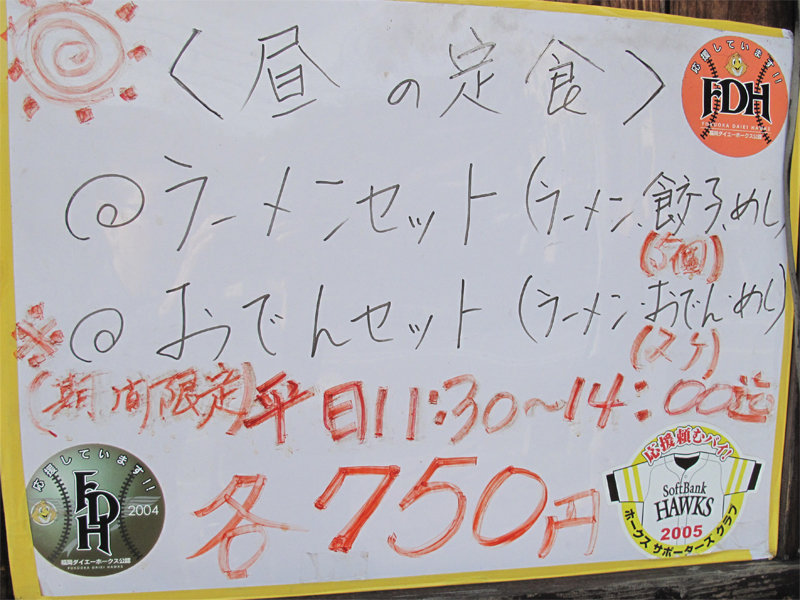 〈昼の定食〉
応援しています!!
FDH
FUKUOKA DAIEI HAWKS
福岡ダイエーホークス公認
@ラーメンセット(ラーメン、餃子、めし)
(5個)
※@おでんセット(ラーメン・おでん・めし)
(2ヶ)
(期間限定)平日11:30~14:00迄
各750円
応援しています!!
FDH
2004
福岡ダイエーホークス公認
FUKUOKA DAIEI HAWKS
応援頼むバイ!
SoftBank
HAWKS
2005
ホークス サポーターズ クラブ